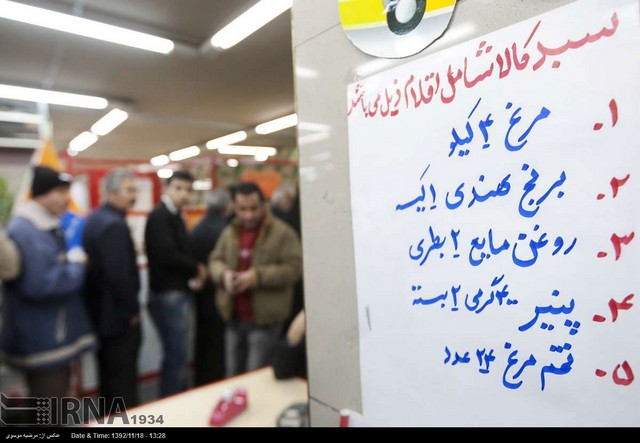 سبد کالا شامل اقلام ذیل می باشد
۱. مرغ ۴ کیلو
۲. برنج هندی ۱ کیسه
۳. روغن مایع ۲ بطری
۴. پنیر ۴۰۰ گرمی ۲ بسته
۵. تخم مرغ ۲۴ عدد
IRNA 1934
عکس از: مرضیه موسوی Date & Time: 1392/11/18 - 13:28